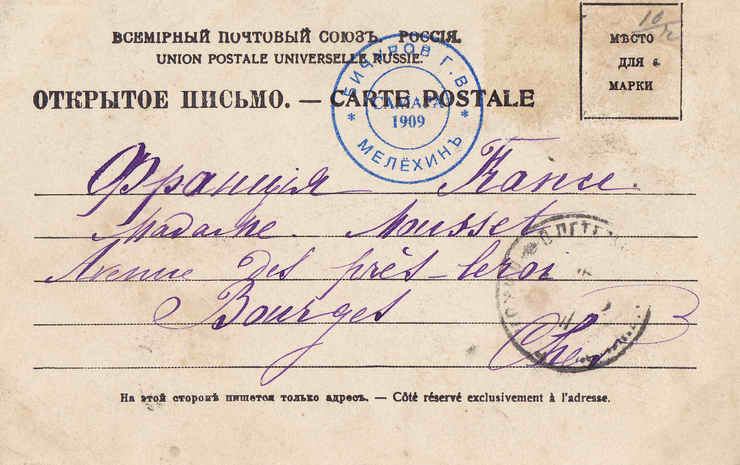 ВСЕМІРНЫЙ ПОЧТОВЫЙ СОЮЗЪ. РОССІЯ.
UNION POSTALE UNIVERSELLE RUSSIE.
ОТКРЫТОЕ ПИСЬМО. — CARTE POSTALE
МѢСТО
ДЛЯ
МАРКИ
БИЧЫРОВ Г.В.
САМАРА
1909
* МЕЛЁХИНЪ *
Франція France.
Madame. Mousset
Avenue des près-leroi
Bourges
Cher
На этой сторонѣ пишется только адресъ. — Côté réservé exclusivement à l'adresse.